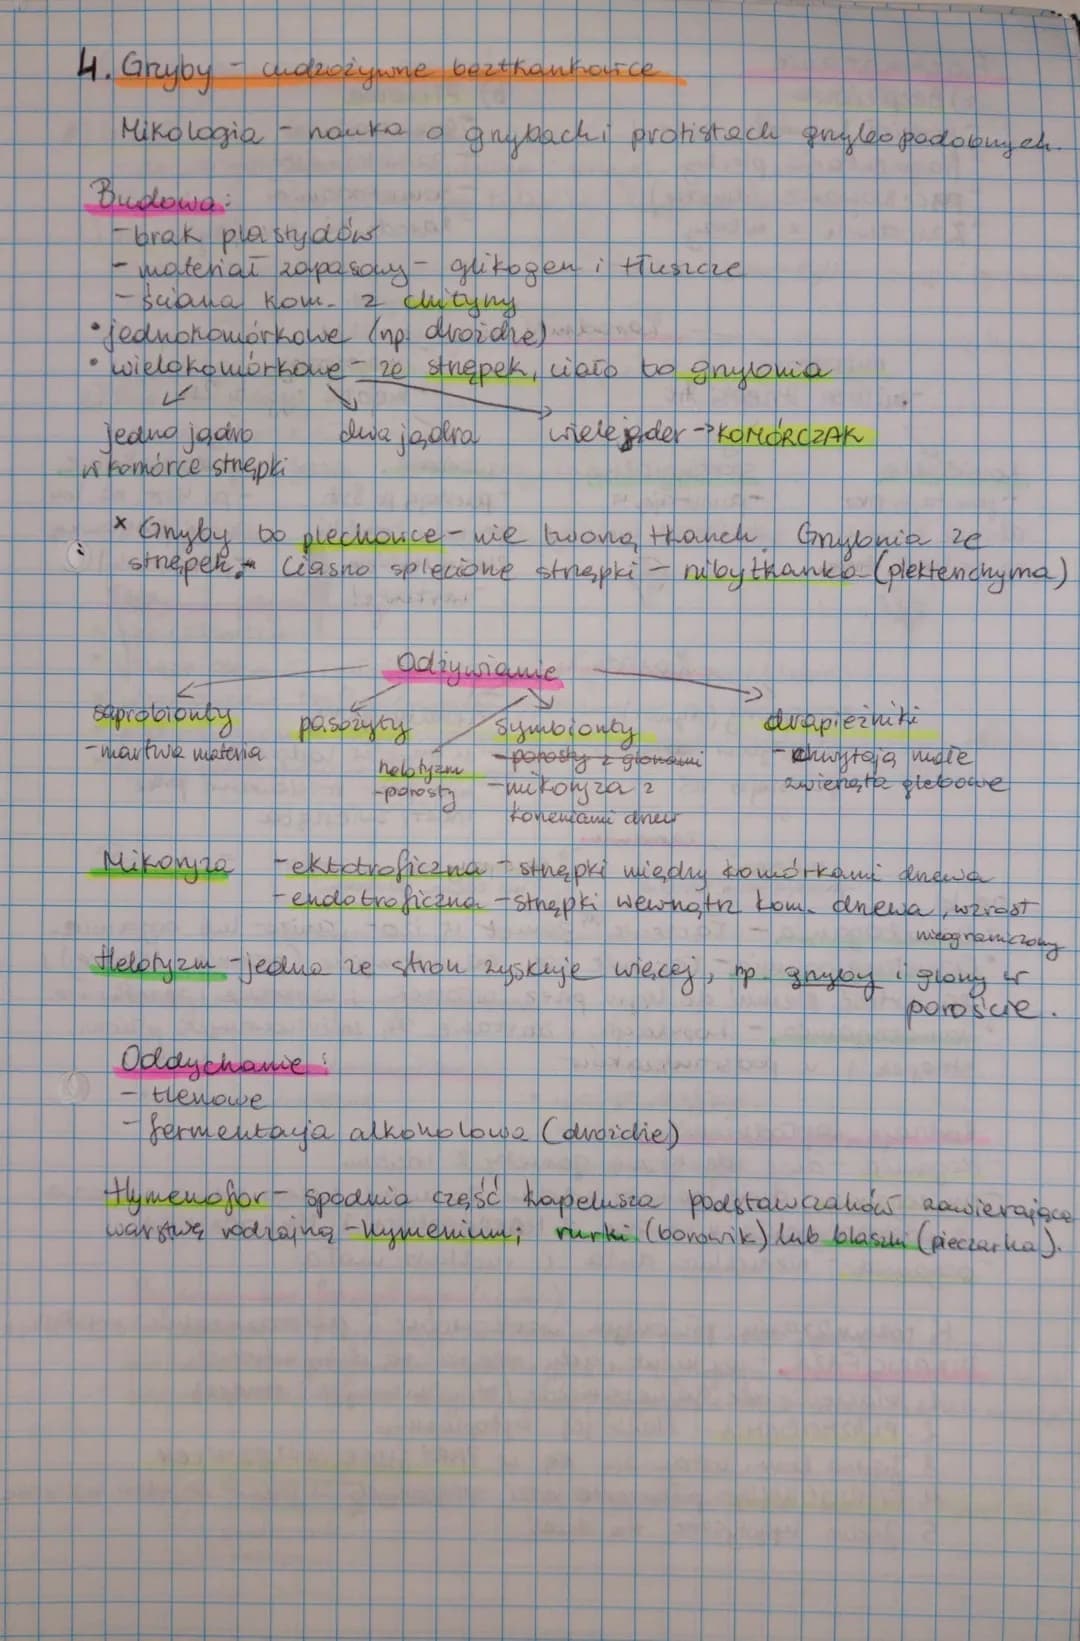 4. Grzyby - cudzożywne beztkankowce
Mikologia - nauka o grzybach i protistach grzybopodobnych.
Budowa:
- brak plastydów
- materiał zapasowy - glikogen i tłuszcze
- ściana kom. z chityny
• jednokomórkowe (np. drożdże)
• wielokomórkowe - ze strzępek, ciało to grzybnia
jedno jądro dwa jądra wiele jąder -> KOMÓRCZAK
w komórce strzępki
x Grzyby to plechowce - nie tworzą tkanek. Grzybnia ze
strzępek. Ciasno splecione strzępki - nibytkanka (plektenchyma)
Odżywianie
saprobionty pasożyty symbionty drapieżniki
- martwa materia helotyzm - porosty z glonami - chwytają małe
- porosty - mikoryza z zwierzęta glebowe
korzeniami drzew
Mikoryza - ektotroficzna - strzępki między komórkami drzewa
- endotroficzna - strzępki wewnątrz kom. drzewa, wzrost
nieograniczony
Helotyzm - jedna ze stron zyskuje więcej, np. grzyby i glony w
poroście.
Oddychanie:
- tlenowe
- fermentacja alkoholowa (drożdże)
Hymenofor - spodnia część kapelusza podstawczaków zawierająca
warstwę rodzajną - hymenium; rurki (borowik) lub blaszki (pieczarka).